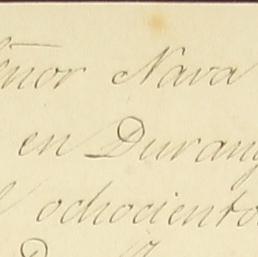 ñor Nava
en Durang
l ochociento